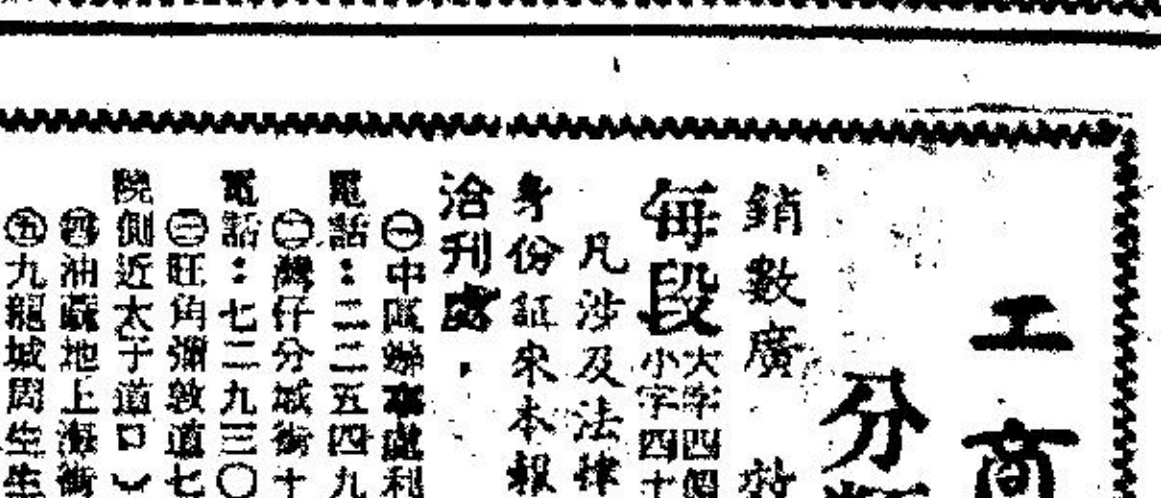 工商
分類
銷數廣 效
每段大字四個
小字四十
凡涉及法律
身份証來本報
洽刋處：
㊀中區辦事處利
電話：二二五四九
㊁灣仔分域街十
電話：七二九三〇
㊂旺角彌敦道七
院側近太子道口）
㊃油蔴地上海街
㊄九龍城周生生